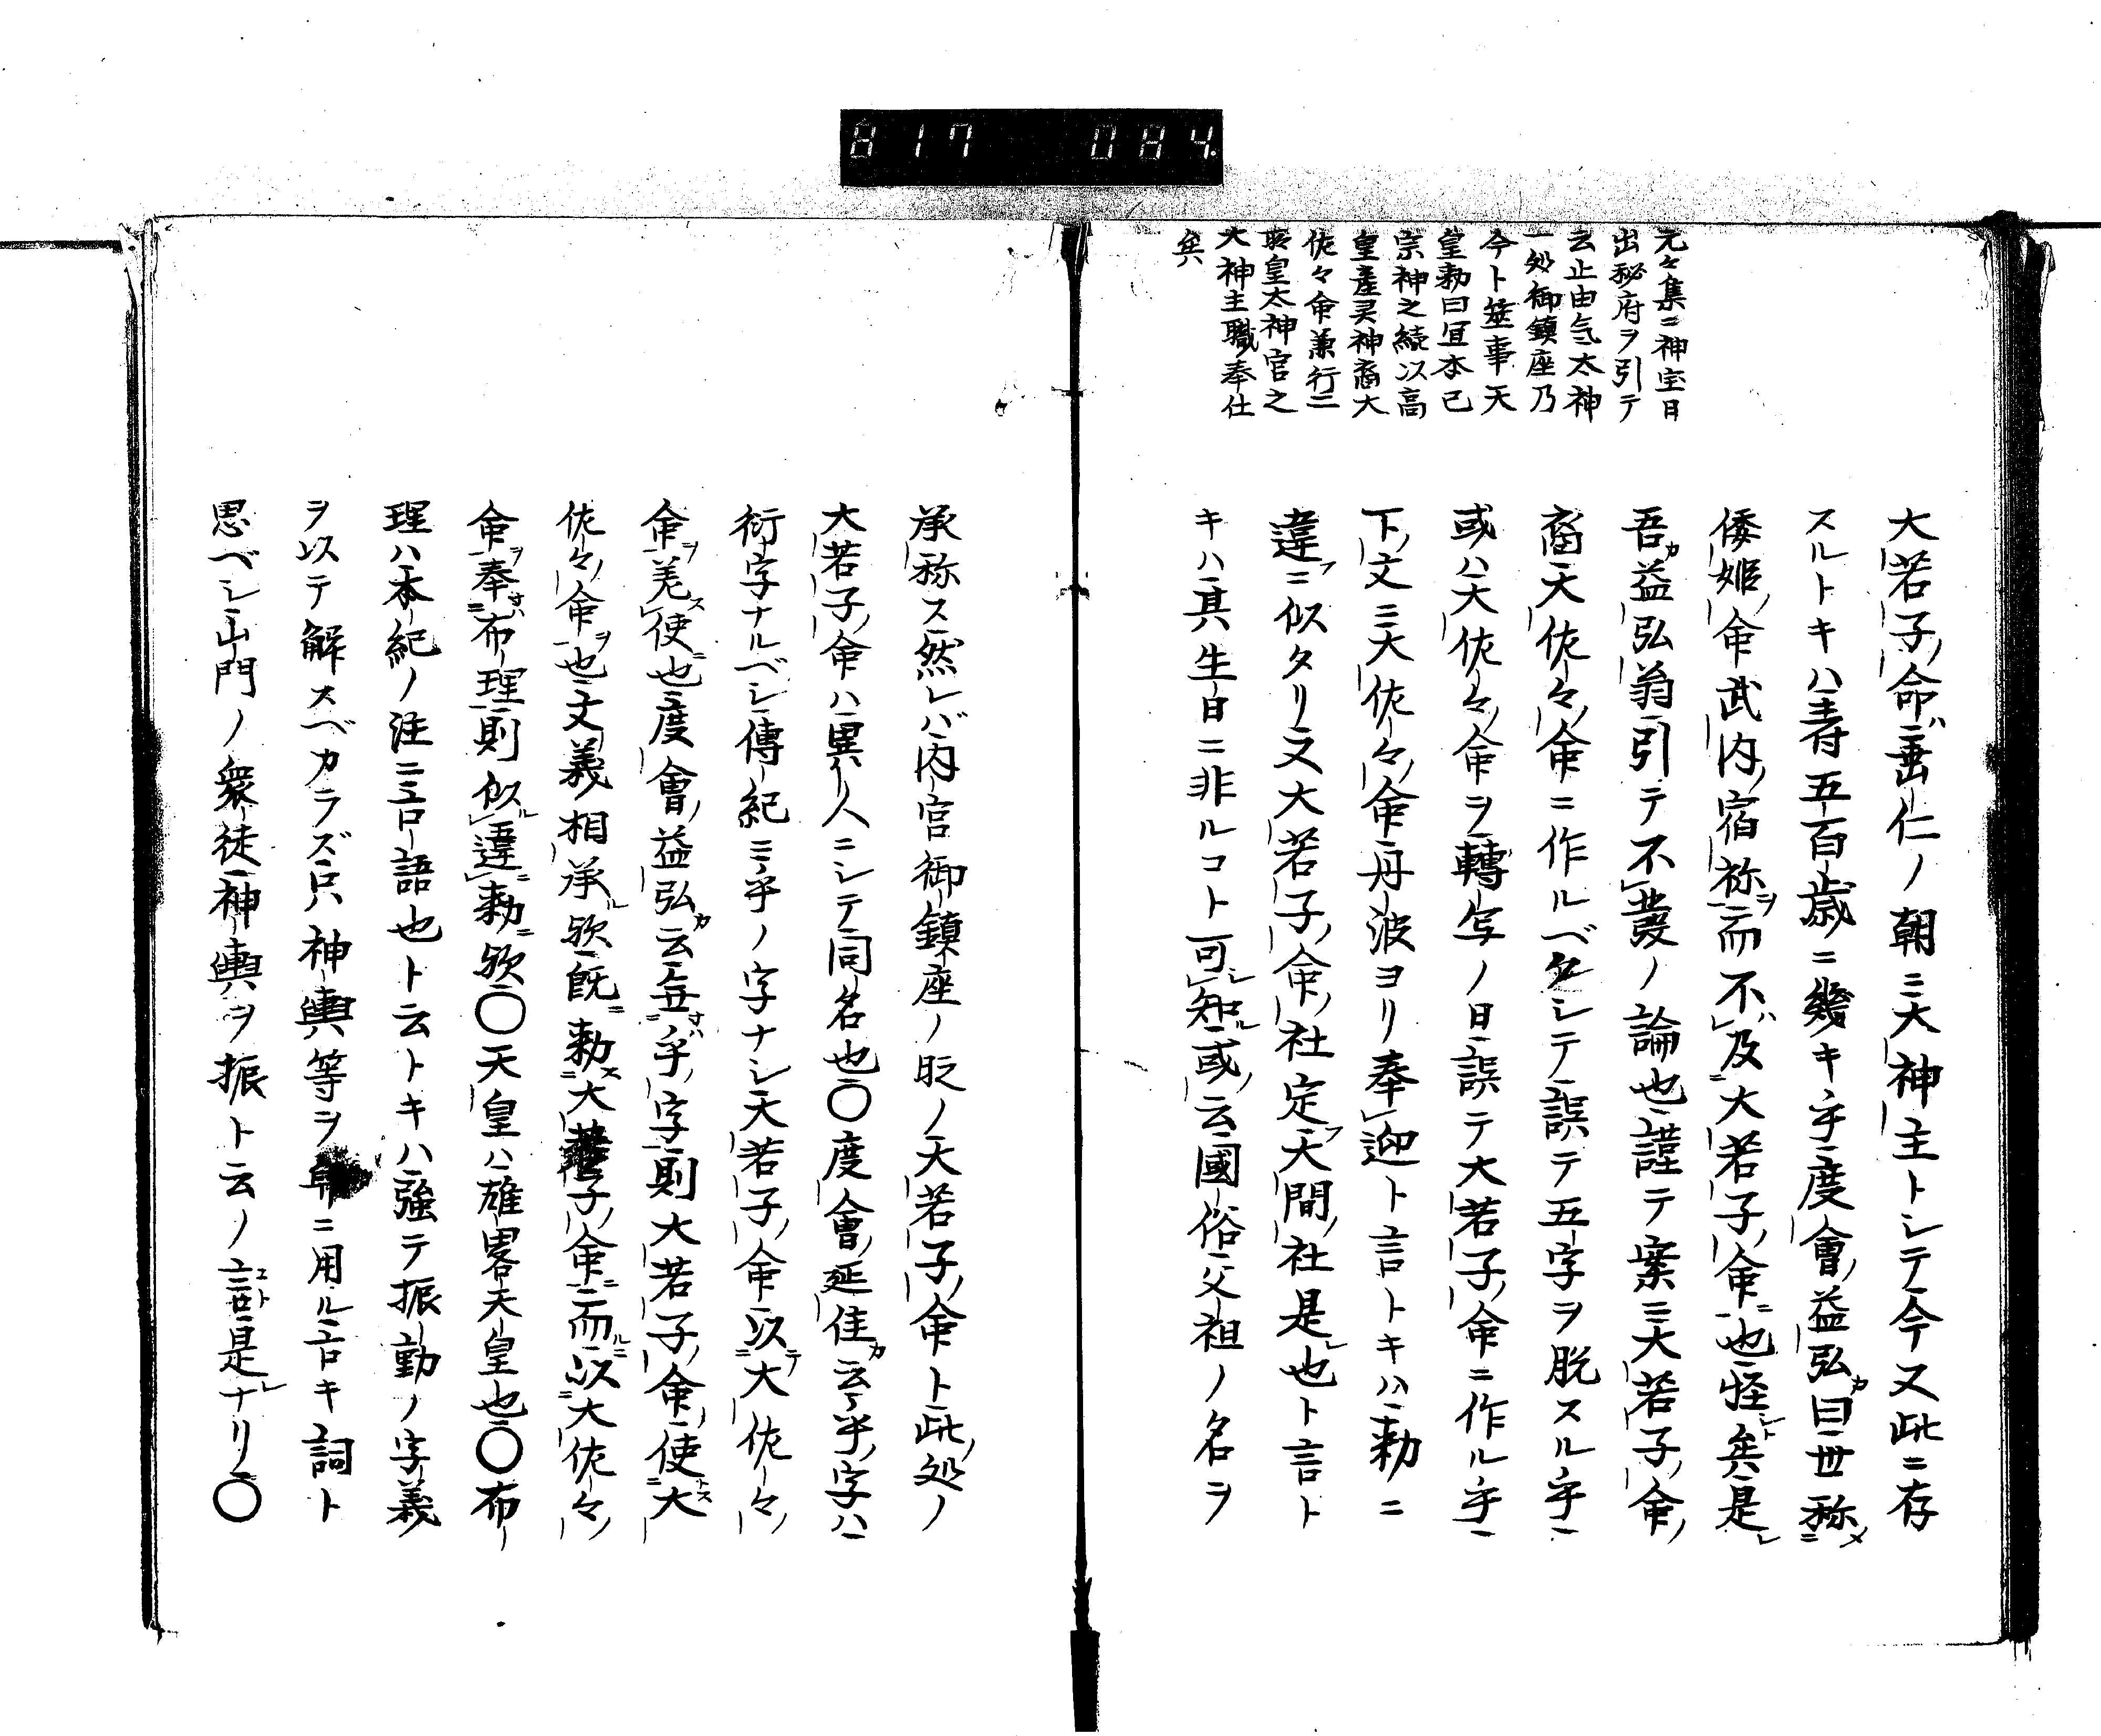 817 084
元々集ニ神宝日
出秘府ヲ引テ
云止由気太神
一処御鎮座乃
今ト筵事天
皇勅曰宜本已
宗神之続以高
皇産灵神裔大
佐々命兼行二
所皇太神官之
大神主職奉仕
矣
大若子命ハ垂仁ノ朝ニ大神主トシテ今又此ニ存
スルトキハ寿五百歳ニ幾キ乎度會益弘カ曰世称メ
倭姫命武内宿祢ヲ而不ハ及大若子命ニ也怪シト矣是レ
吾カ益弘翁引テ不叢ノ論也謹テ案ニ大若子命
裔天佐々命ニ作ルベクシテ誤テ五字ヲ脱スル乎
或ハ大佐々命ヲ轉写ノ日誤テ大若子命ニ作ル乎
下文ニ大佐々命丹波ヨリ奉迎ト言トキハ勅ニ
違フニ似タリ又大若子命社定天間社是レ也ト言ト
キハ其生日ニ非ルコト可シ知ル或云國俗父祖ノ名ヲ
承称ス然レバ内官御鎮座ノ昵ノ天若子命ト此処ノ
大若子命ハ異リ人ニシテ同名也〇度會延佳カ云乎字ハ
衍字ナルベシ傳紀ニ乎ノ字ナシ天若子命以テ大佐々
命ヲ羌ス使ニ也度會益弘カ云無ナハ乎字則大若子命使トス大
佐々命ヲ也文義相承ル欤既ニ勅ス大若子命ニ而ルニ以大佐々
命ヲ奉ナハ布理則似ル違ニ勅ニ欤〇天皇ハ雄畧天皇也〇布
理ハ本紀ノ注ニ言語也ト云トキハ強テ振動ノ字義
ヲ以テ解スベカラズ只神輿等ヲ舁ニ用ル言キ詞ト
思ベシ山門ノ衆徒神輿ヲ振ト云ノ諺是レナリ〇